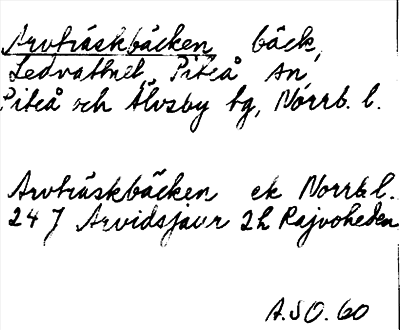 Arvträskbäcken bäck,
Ledvattnet, Piteå sn,
Piteå och Älvsby tg, Norrb. l.
Arvträskbäcken ek Norrb l.
24 J Arvidsjaur 2h Rajvoheden
A.SO. 60